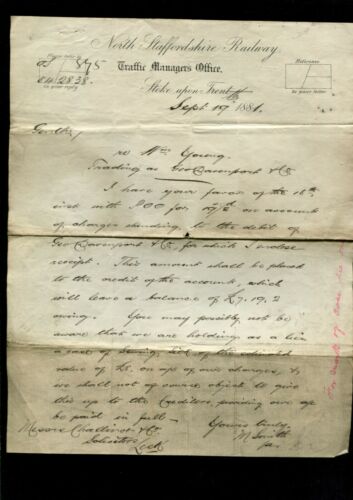 North Staffordshire Railway.
Please refer to
Reference
Traffic Manager's Office,
on your reply
in your letter
Stoke upon Trent
Sept 19th 1881.
Gentln
re Wm Young
Trading as Geo Davenport & Co
I have your favor of the 18th
inst with POO for on account
of charges standing to the debit of
Geo Davenport & Co, for which I enclose
receipt. This amount shall be placed
to the credit of the account, which
will leave a balance of £7. 19. 2
owing. You may possibly not be
aware that we are holding as a lien
a case of of the
value of £5. on ac/ of our charges, &
we shall not of course object to give
this up to the Creditors, providing our ac/
be paid in full.
Yours truly
Messrs Challinor & Co.
Solicitors
Leek
M Smith